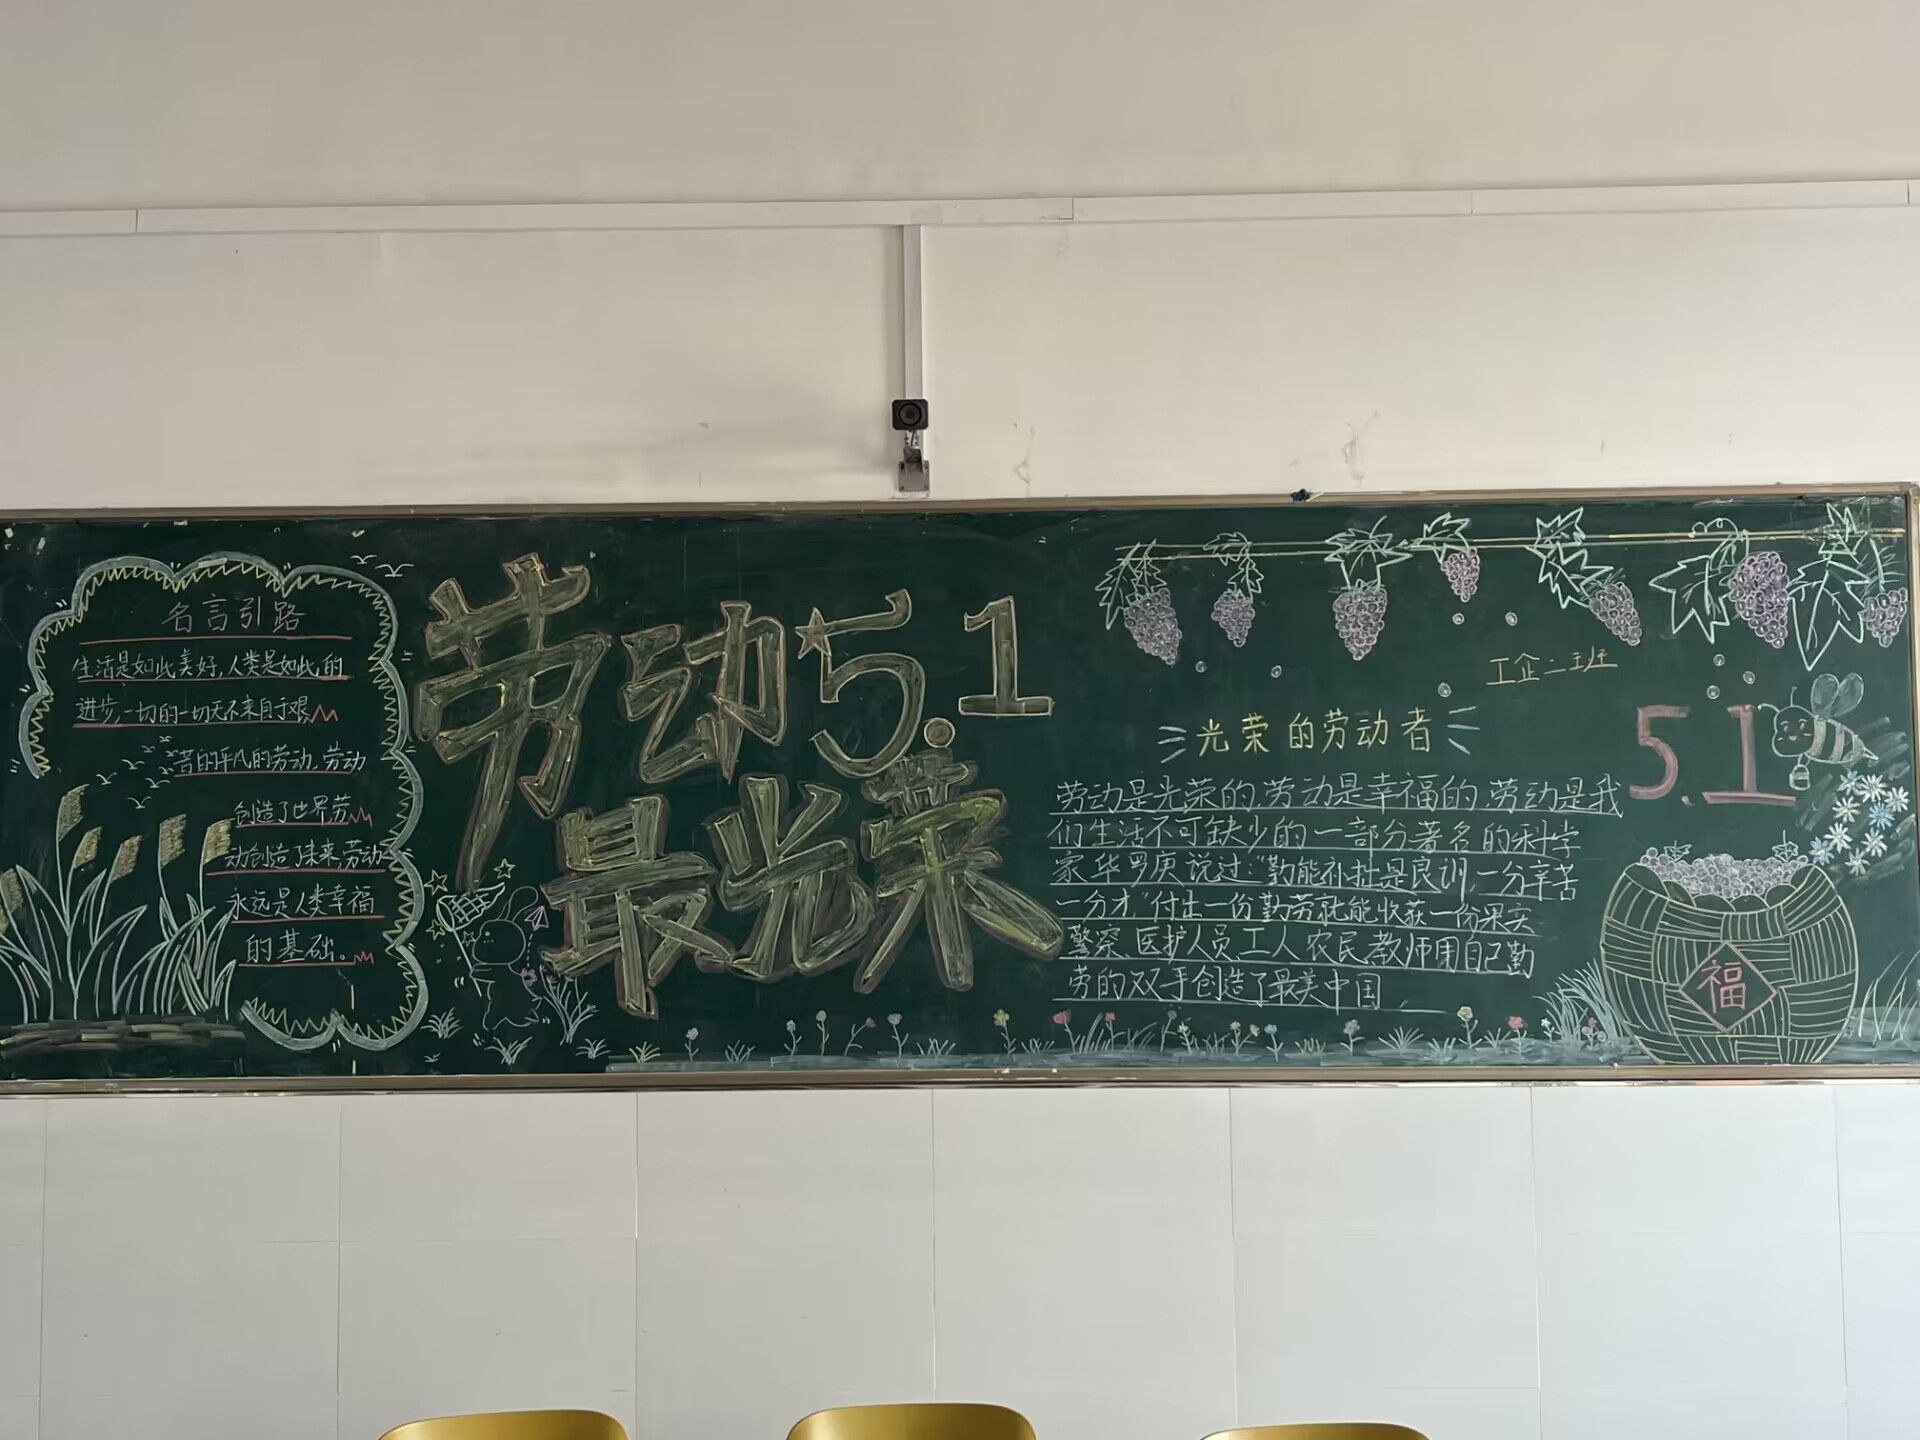 名言引路
生活是如此美好,人类是如此的
进步,一切的一切无不来自于艰
苦的平凡的劳动,劳动
创造了世界劳
动创造了未来,劳动
永远是人类幸福
的基础。
劳动5.1
最光荣
工企二班
光荣的劳动者
劳动是光荣的,劳动是幸福的,劳动是我
们生活不可缺少的一部分著名的科学
家华罗庚说过:“勤能补拙是良训,一分辛苦
一分才,”付出一份勤劳就能收获一份果实
警察、医护人员、工人、农民、教师用自己勤
劳的双手创造了最美中国
5.1
福